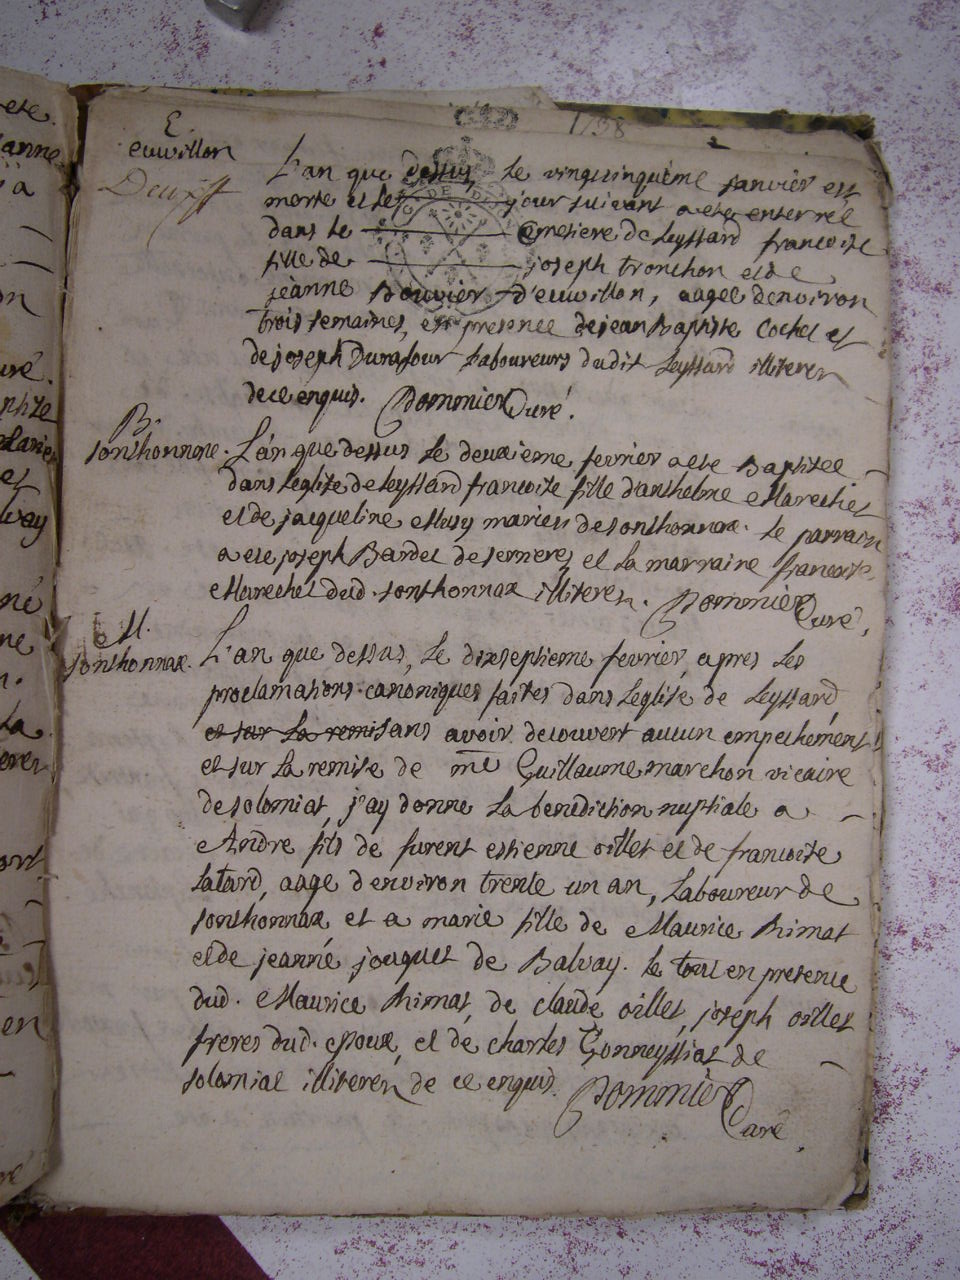 1738
E
euvillon
L'an que dessus, le vingcinquieme janvier est
morte et le jour suivant a ete enterreé
dans le Cimetiere de Leyssard francoise
fille de joseph tronchon et de
jeanne Bouvier d'euvillon, aageé denviron
trois semaines, en presence de jean Baptiste Cochet et
de joseph Durafour Laboureurs dudit Leyssard illiteres
de ce enquis. Pommier Curé.
B.
sonthonnax. L'an que dessus le deuxieme fevrier a ete Baptiseé
dans leglise de Leyssard francoise fille d'anthelme Marechet
et de jacqueline Mury mariés de sonthonnax. le parrain
a ete joseph Bardet de serrieres et la marraine francoise
Marechet dud. sonthonnax illiteres. Pommier Curé,
M.
sonthonnax. L'an que dessus, le dixseptieme fevrier, apres les
proclamations canoniques faites dans leglise de Leyssard
et sur la remi sans avoir decouvert aucun empechement
et sur la remise de me Guillaume marchon vicaire
de solomiat, j'ay donné la benediction nuptiale a
Andre fils de furent estienne oillet et de francoise
Latard, aagé d'environ trente un an, Laboureur de
sonthonnax et a marie fille de Maurice Rimat
et de jeanne jouquet de Balvay. le tout en presence
dud. Maurice Rimat, de claude oillet, joseph oillet
freres dud. epoux, et de charles Gonneyssiat de
solomiat illiteres de ce enquis. Pommier
Curé